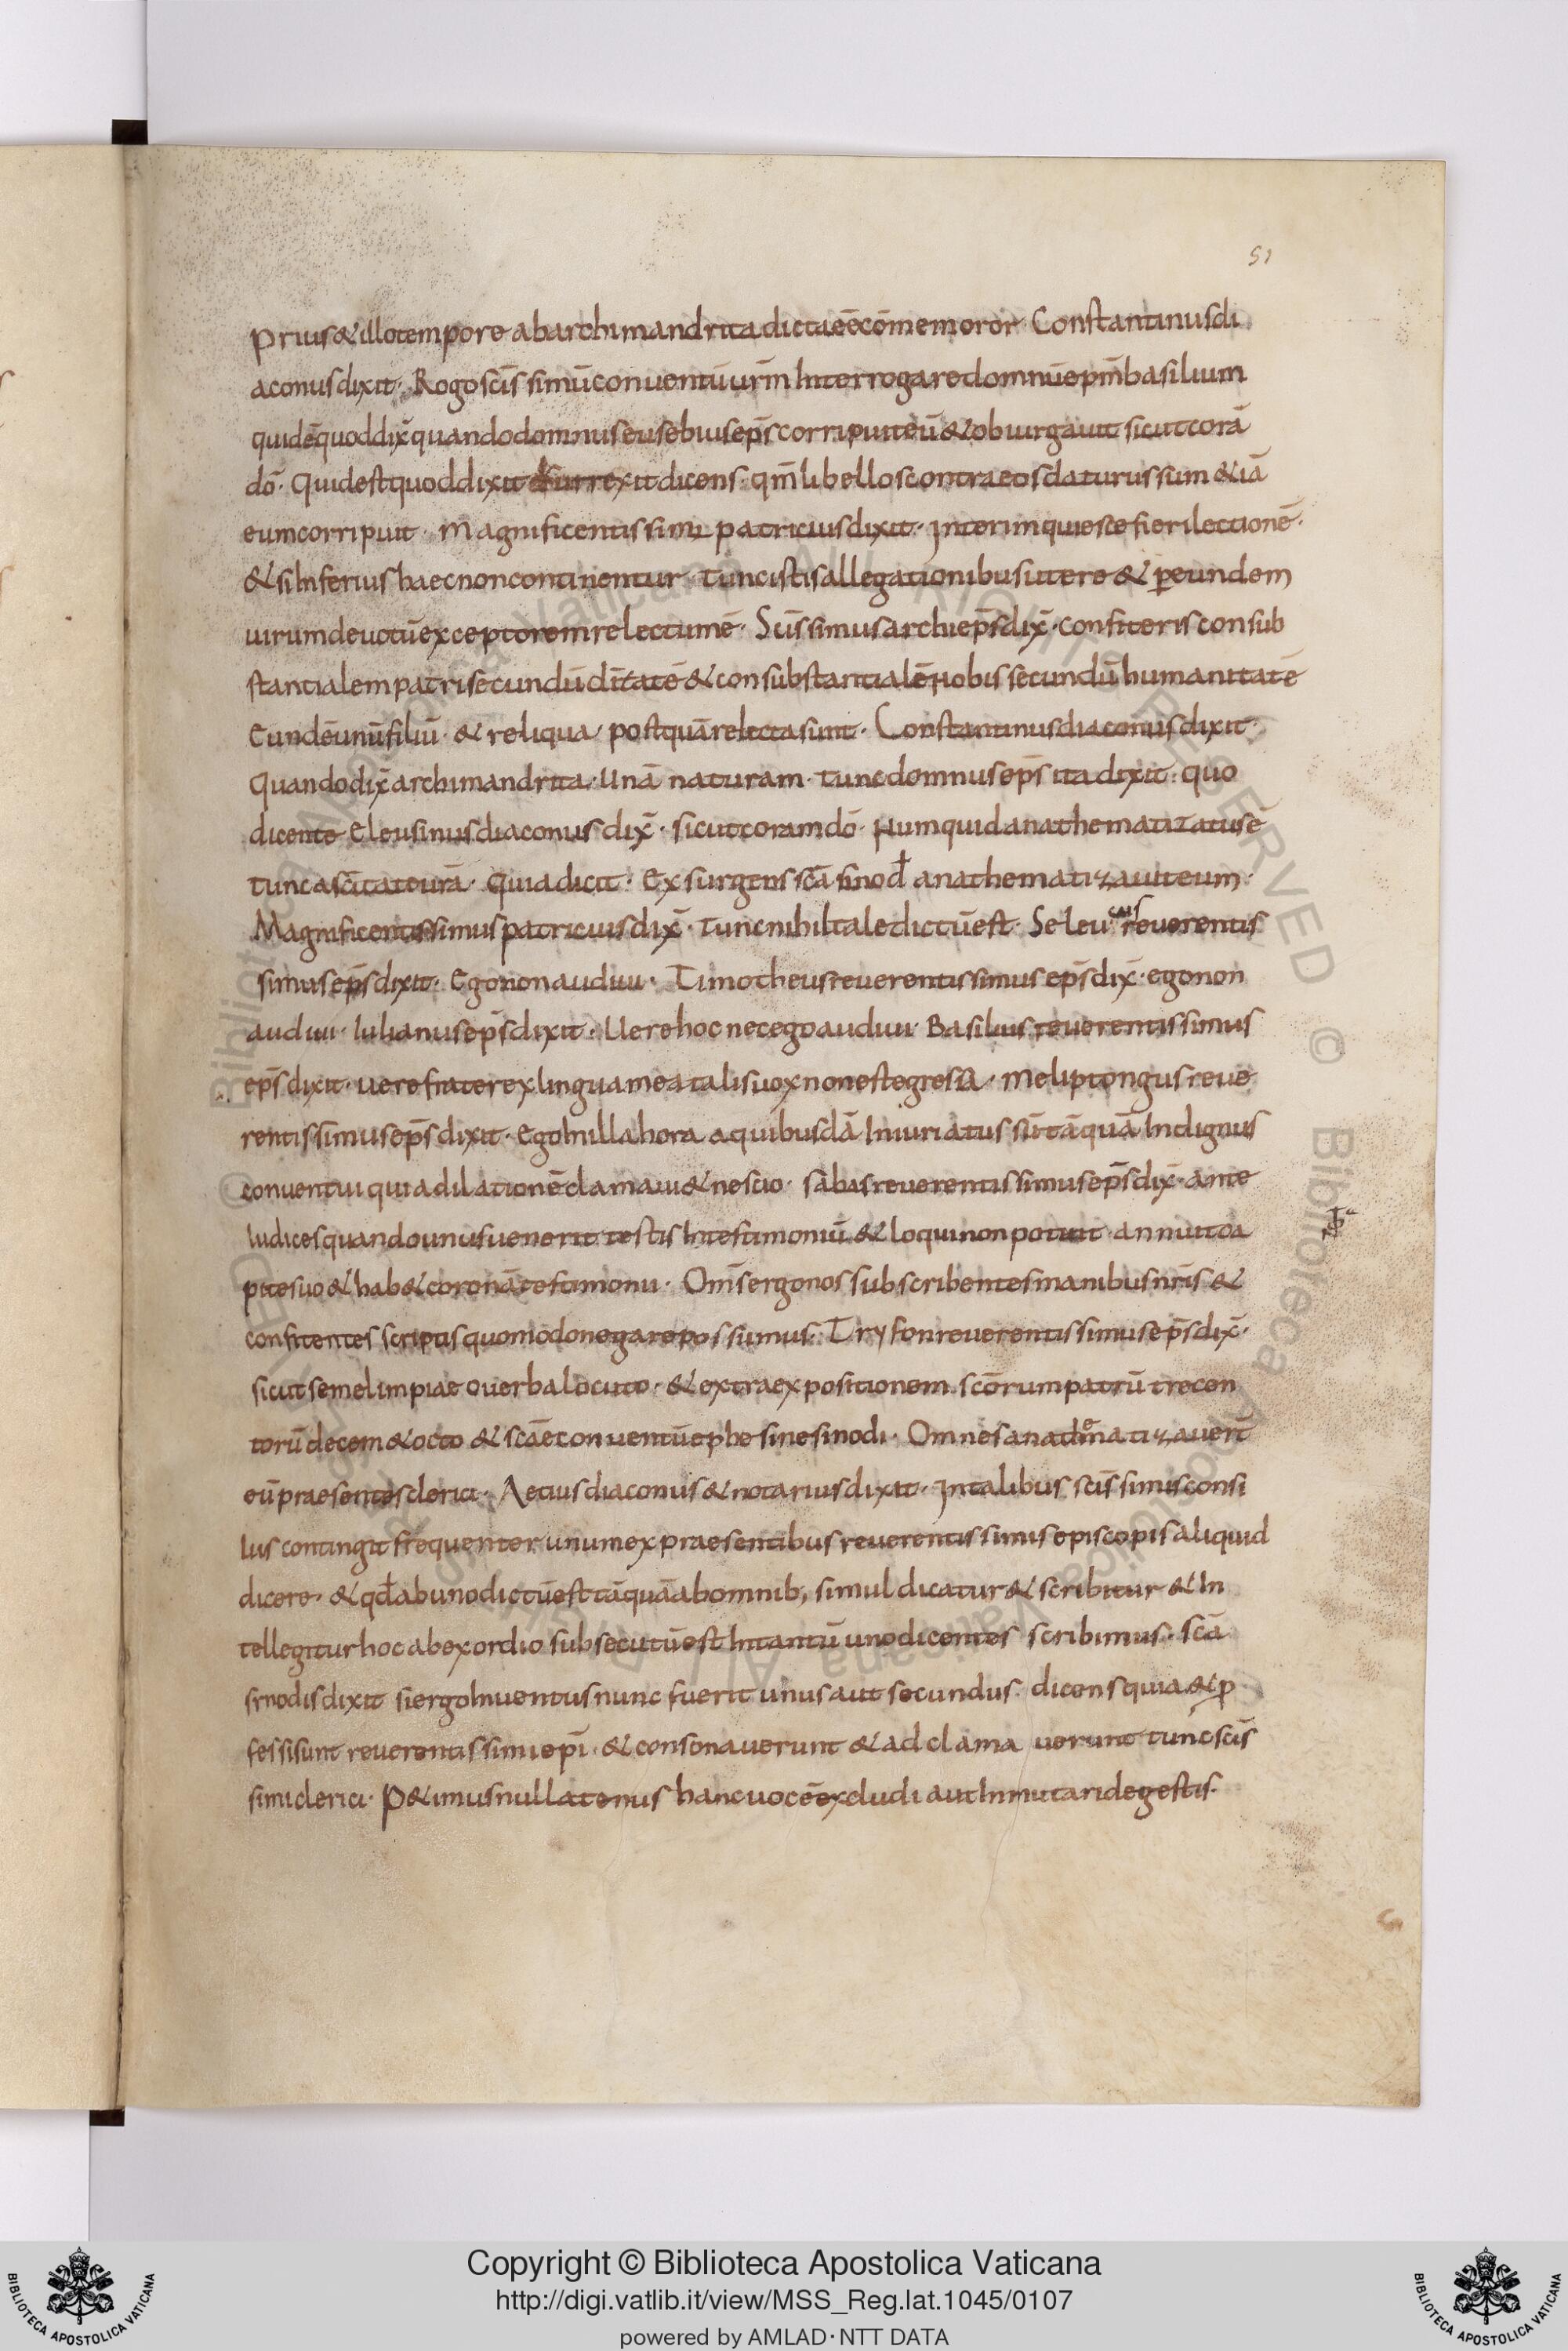 51
prius & illo tempore ab archimandrita dicta eē cōmemoror· Constantinus di
aconus dixit· Rogo scīssimū conuentū urm̄ Interrogare domnū epm̄ basilium
quidē quod dix̄ quando domnus eusebius eps̄ corripuit eū & obiurgauit sicut corā
dō· Quid est quod dixit & surrexit dicens· qm̄ libellos contra eos daturus sum & iā
eum corripuit· Magnificentissimi patricius dixit· Interim quiesce fieri lectionē·
& si Inferius haec non continentur· tunc istis allegationibus utere & p̄ eundem
uirum deuotū exceptorem relectum ē· Scīssimus archieps̄ dix̄· confiteris consub
stantialem patri secundū dītatē & consubstantialē nobis secundū humanitatē
Eundē unū filiū· & reliqua· postquā relecta sunt· Constantinus diaconus dixit·
Quando dix̄ archimandrita· Unā naturam· tunc domnus eps̄ ita dixit· quo
dicente Eleusinus diaconus dix̄· sicut coram dō· Numquid anathematizatus ē
tunc a scītate urā· Quia dicit· Exsurgens scā sinod anathematizauit eum·
Magnificentissimus patricius dix̄· Tunc nihil tale dictū est· Seleucus reuerentis
simus eps̄ dixit· Ego non audiui· Timotheus reuerentissimus eps̄ dix̄· ego non
audiui· Iulianus eps̄ dixit· Uere hoc nec ego audiui· Basilius reuerentissimus
eps̄ dixit· uere frater ex lingua mea talis uox non est egressa· Meliptongus reue
rentissimus eps̄ dixit· Ego In illa hora a quibusdā Iniuriatus sū tāquā Indignus
conuentui quia dilationē clamaui & nescio· sabas reuerentissimus eps̄ dix̄· ante
Iudices quando unus uenerit testis In testimoniū & loqui non potuit annuit ca
pite suo & hab& coronā testimonii· Oms̄ ergo nos subscribentes manibus nr̄is &
confitentes scriptis quomodo negare possumus· Tryfon reuerentissimus eps̄ dix̄·
sicut semel impiae o uerba locuto· & extra expositionem scōrum patrū trecen
torū decem & octo & scāe conuentū ephesine sinodi· Omnes anathematizauer̄t
eū praesentes clerici· Aetius diaconus & notarius dixit· In talibus scīssimis consi
liis contingit frequenter unum ex praesentibus reuerentissimis episcopis aliquid
dicere· & qd ab uno dictū est tāquā ab omnib; simul dicatur & scribitur & In
tellegitur hoc ab exordio subsecutū est In tantū uno dicentes scribimus· scā
sinodis dixit si ergo Inuentus nunc fuerit unus aut secundus· dicens quia & p
fessi sunt reuerentissimi epī· & consonauerunt & adclama uerunt tunc scīs
simi clerici· P&imus nullatenus hanc uocē excludi aut Inmutari de gestis·
Copyright © Biblioteca Apostolica Vaticana
http://digi.vatlib.it/view/MSS_Reg.lat.1045/0107
powered by AMLAD·NTT DATA